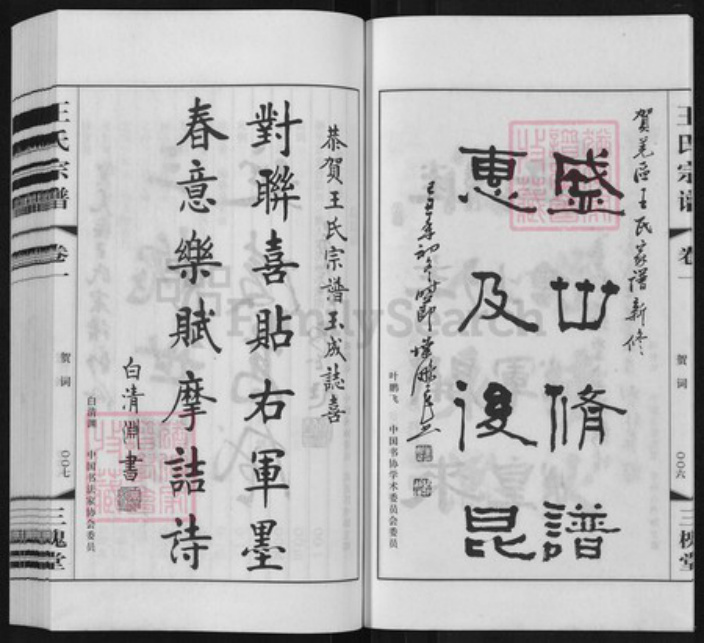 王氏宗谱
卷一
贺词
〇〇六
三槐堂
賀羌區王氏家譜新修
盛世修譜
惠及後昆
叶鹏飞 中国书协学术委员会委员
恭賀王氏宗譜玉成誌喜
對聯喜貼右軍墨
春意樂賦摩詰詩
白清淵書
白清渊 中国书法家协会委员
王氏宗谱
卷一
贺词
〇〇七
三槐堂
FamilySearch